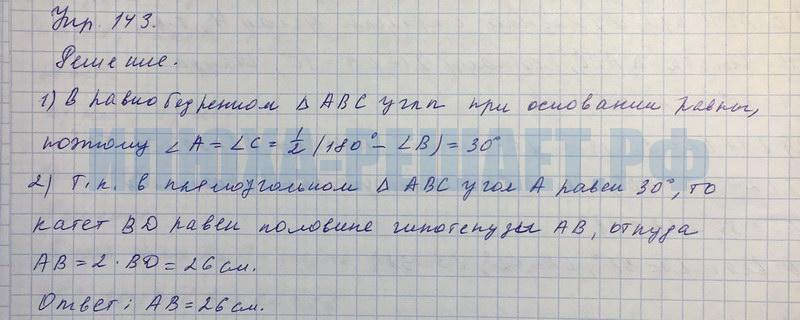 Упр. 143.
Решение.
1) В равнобедренном △ ABC углы при основании равны,
поэтому ∠A = ∠C = 1/2 (180° − ∠B) = 30°
2) Т.к. в прямоугольном △ ABC угол A равен 30°, то
катет BD равен половине гипотенузы AB, откуда
AB = 2 · BD = 26 см.
Ответ: AB = 26 см.